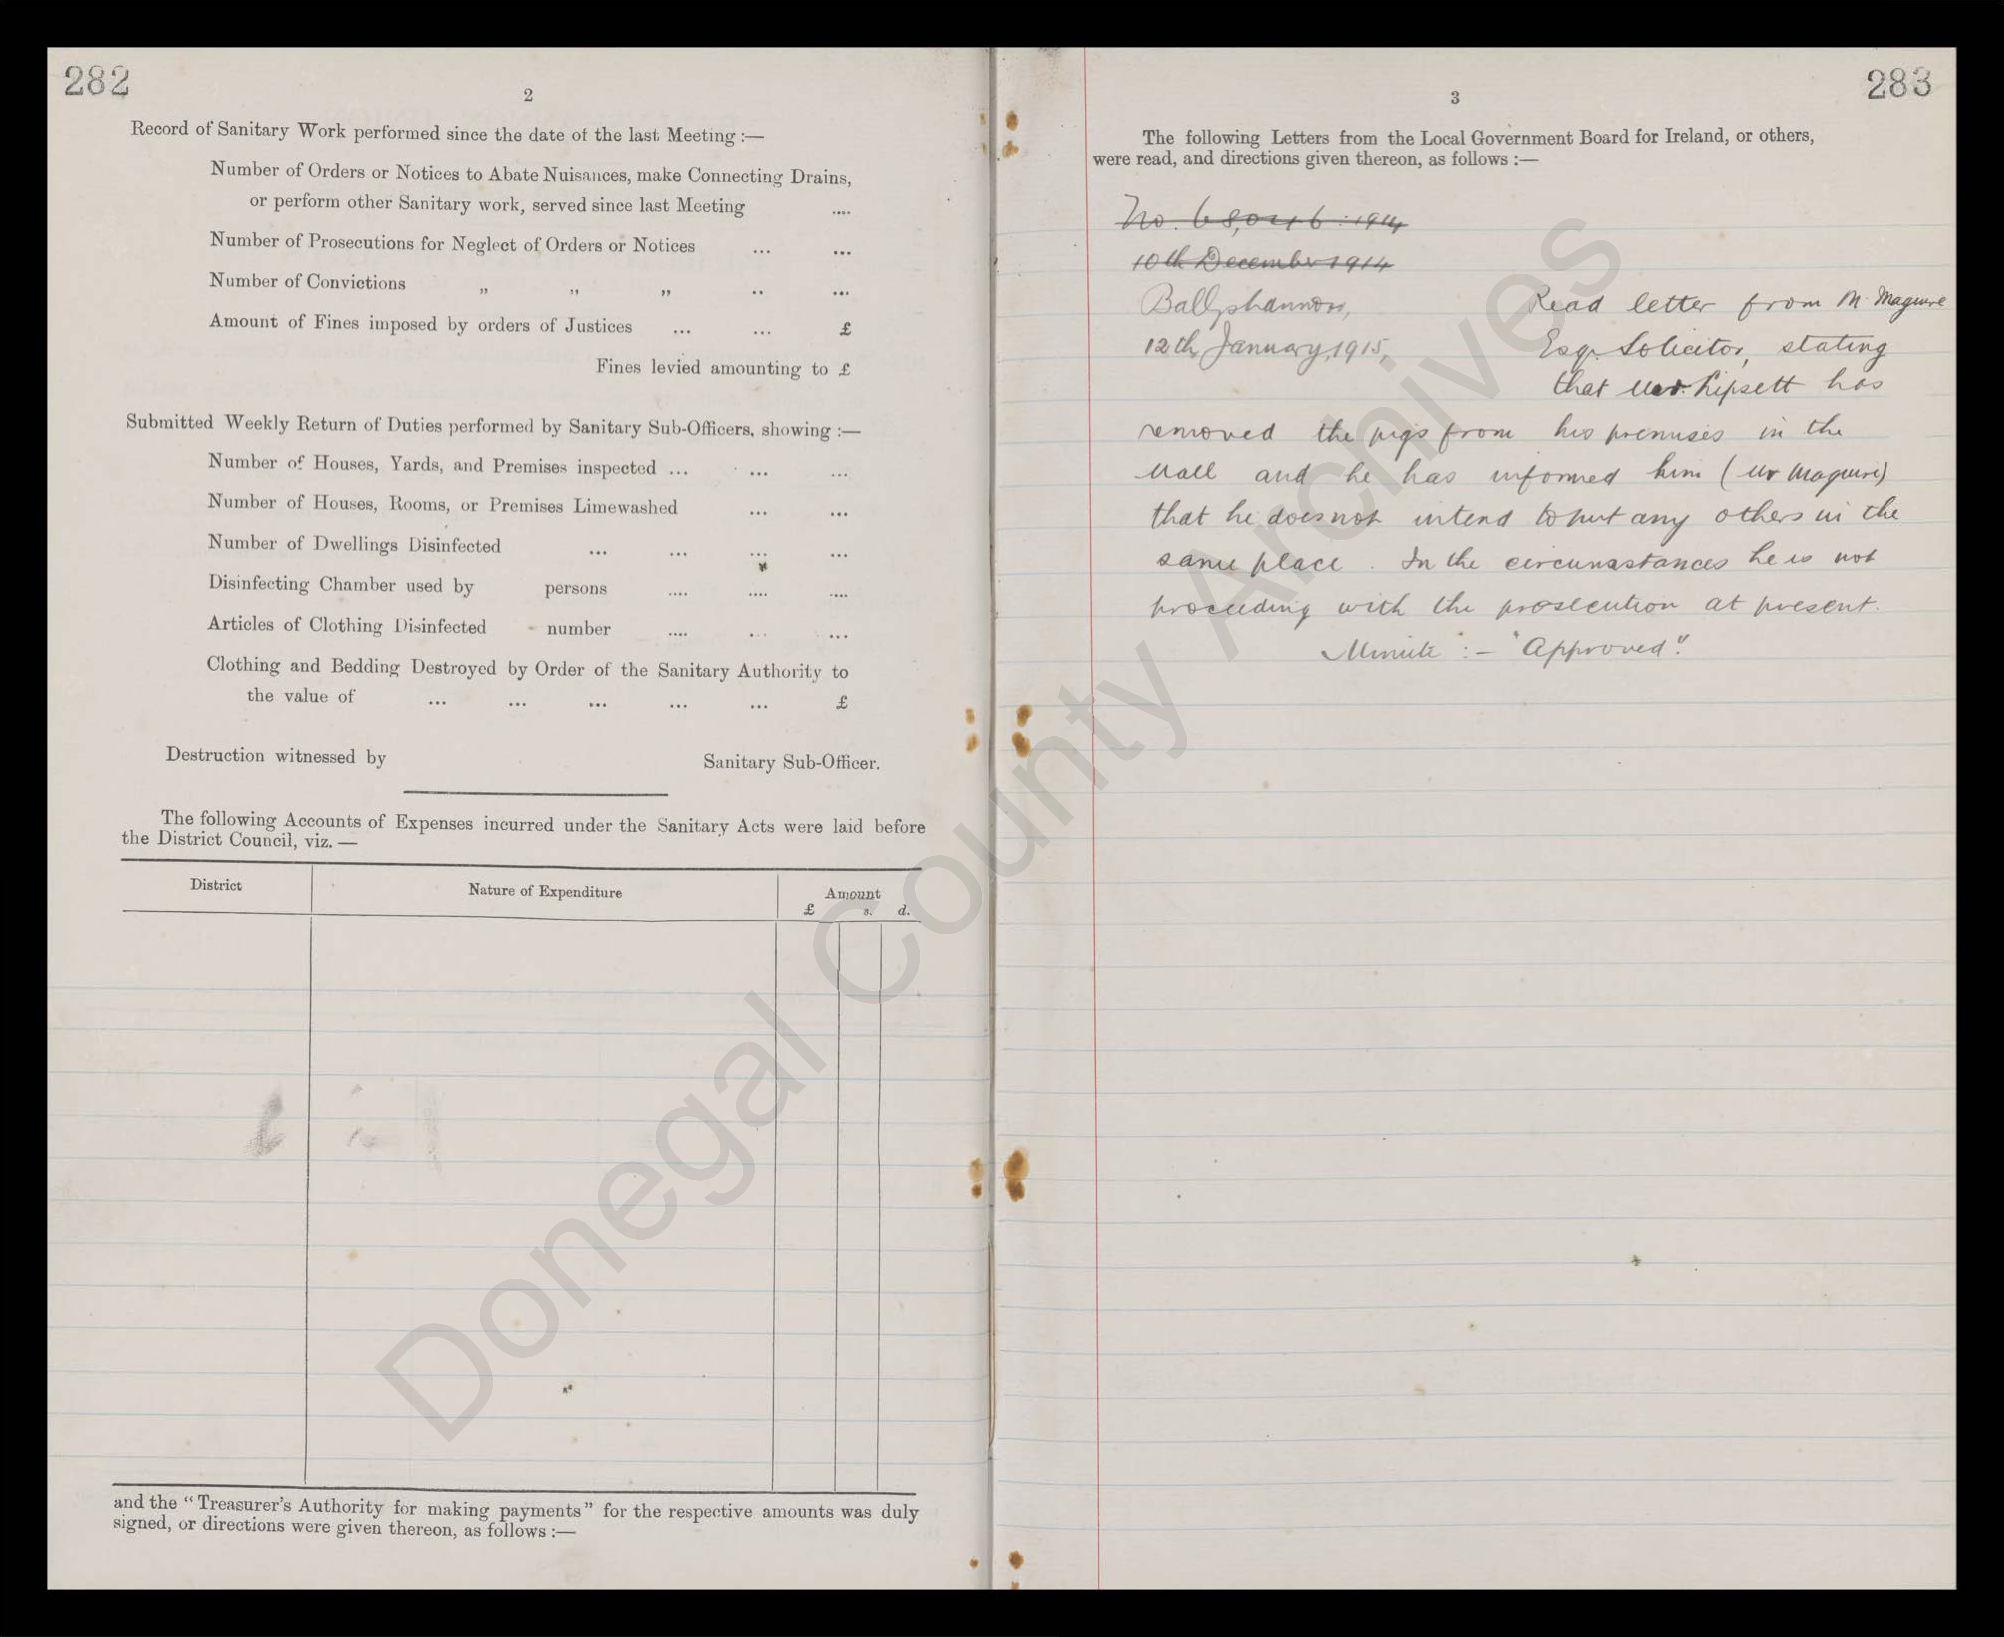 282
2
Record of Sanitary Work performed since the date of the last Meeting :—
Number of Orders or Notices to Abate Nuisances, make Connecting Drains,
or perform other Sanitary work, served since last Meeting ....
Number of Prosecutions for Neglect of Orders or Notices ... ...
Number of Convictions „ „ „ .. ...
Amount of Fines imposed by orders of Justices ... ... £
Fines levied amounting to £
Submitted Weekly Return of Duties performed by Sanitary Sub-Officers, showing :—
Number of Houses, Yards, and Premises inspected ... ... ...
Number of Houses, Rooms, or Premises Limewashed ... ...
Number of Dwellings Disinfected ... ... ... ...
Disinfecting Chamber used by persons .... .... ....
Articles of Clothing Disinfected number .... ... ...
Clothing and Bedding Destroyed by Order of the Sanitary Authority to
the value of ... ... ... ... ... £
Destruction witnessed by Sanitary Sub-Officer.
The following Accounts of Expenses incurred under the Sanitary Acts were laid before
the District Council, viz. —
District Nature of Expenditure Amount
£ s. d.
and the "Treasurer's Authority for making payments" for the respective amounts was duly
signed, or directions were given thereon, as follows :—
283
3
The following Letters from the Local Government Board for Ireland, or others,
were read, and directions given thereon, as follows :—
No. 1914
10th December 1914
Ballyshannon, Read letter from M. Maguire
12th January, 1915, Esqr. Solicitor, stating
that Mr. Lipsett has
removed the pigs from his premises in the
Mall and he has informed him (Mr Maguire)
that he does not intend to put any others in the
same place. In the circumstances he is not
proceeding with the prosecution at present.
Minute :- "Approved."
Donegal County Archives